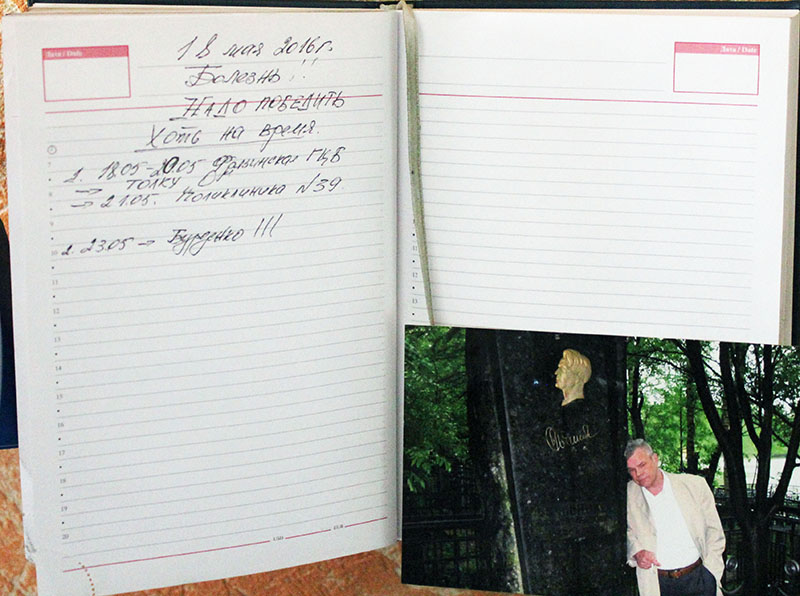 Дата / Date
Дата / Date
18 мая 2016 г.
Болезнь!!
Надо победить
Хоть на время.
1. 18.05-20.05 ГКБ
→ толку
→ 21.05. Поликлиника №39
2. 23.05 → Бурденко !!!
7
8
9
10
11
12
13
14
15
16
17
18
19
20
11
12
13